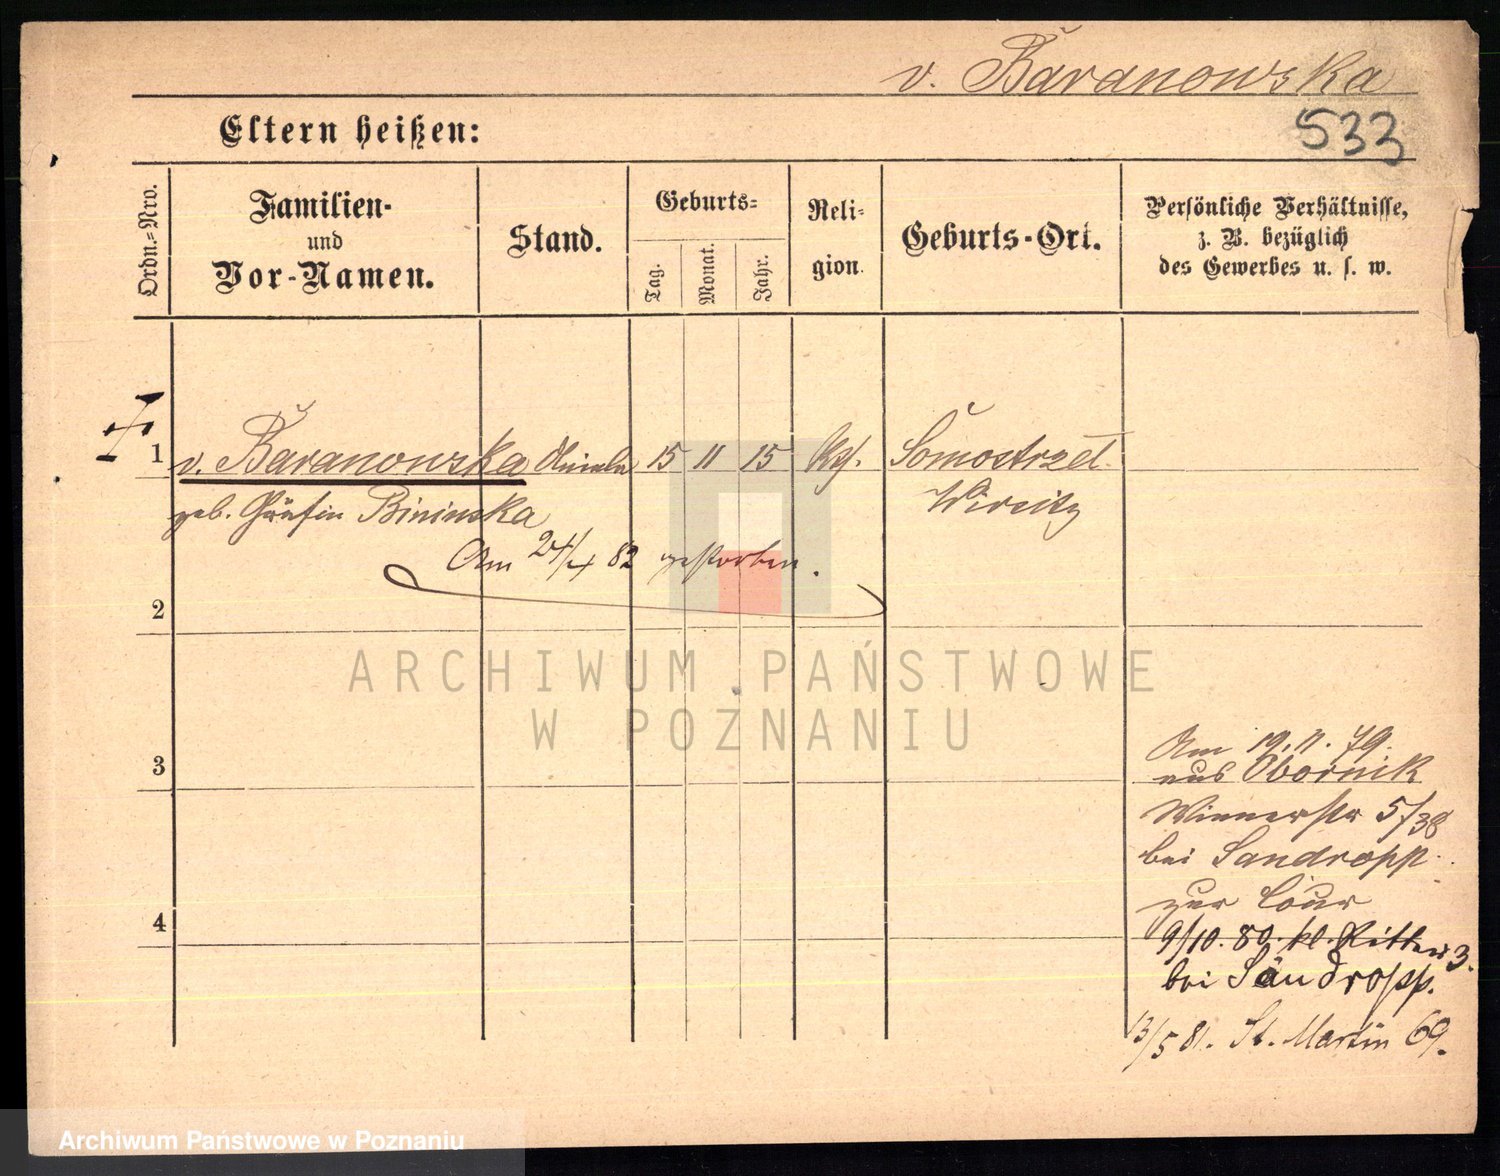 v. Baranowska
533
Eltern heißen:
Ordn.=Nro.
Familien-
und
Vor-Namen.
Stand.
Geburts=
Tag.
Monat.
Jahr.
Reli-
gion.
Geburts-Ort.
Persönliche Verhältnisse,
z. B. bezüglich
des Gewerbes u. s. w.
1 v. Baranowska 15 11 15 Somostrzel
geb. Gräfin Bininska Wirsitz
Am 24/4 82 gestorben.
2
ARCHIWUM PAŃSTWOWE
W POZNANIU
3
Am 19. 11. 79.
aus Obornik
Wienerstr 5/38
bei Sandropp.
zur
4
9/10. 80. kl. Ritter 3.
bei Sandropp.
13/5 81. St. Martin 69.
Archiwum Państwowe w Poznaniu